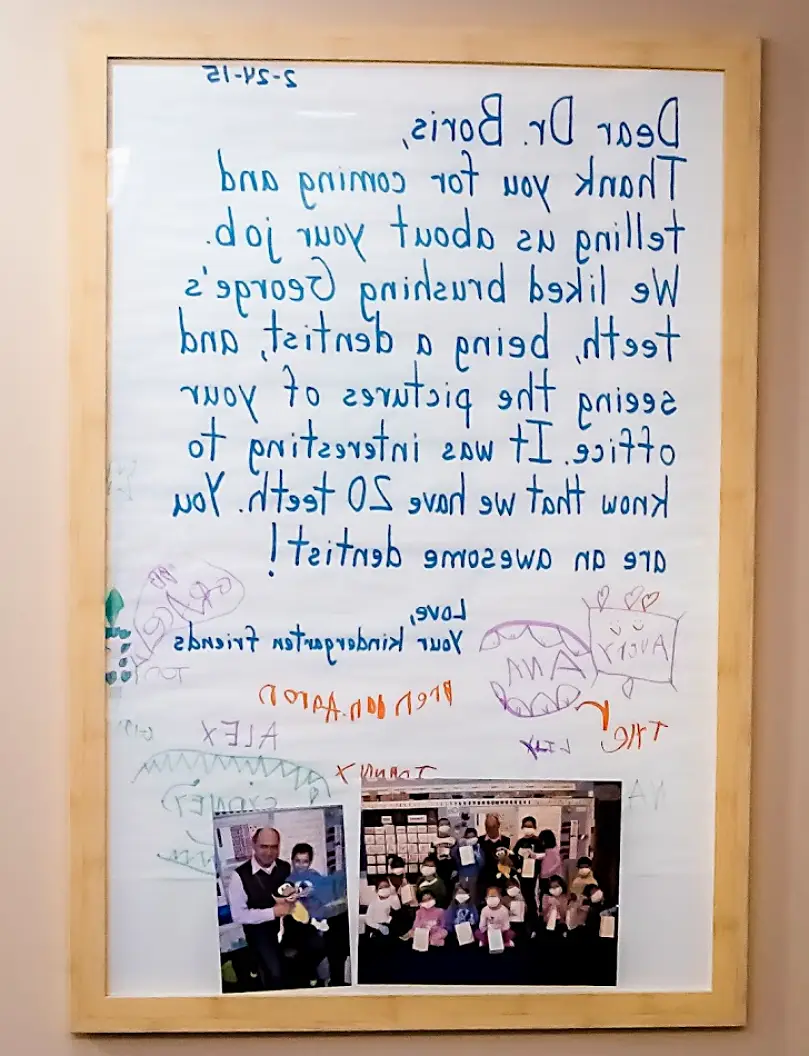 2-24-15
Dear Dr. Boris,
Thank you for coming and
telling us about your job.
We liked brushing George's
teeth, being a dentist, and
seeing the pictures of your
office. It was interesting to
know that we have 20 teeth. You
are an awesome dentist!
Love,
Your kindergarten friends
Avery
Ann
ALEX